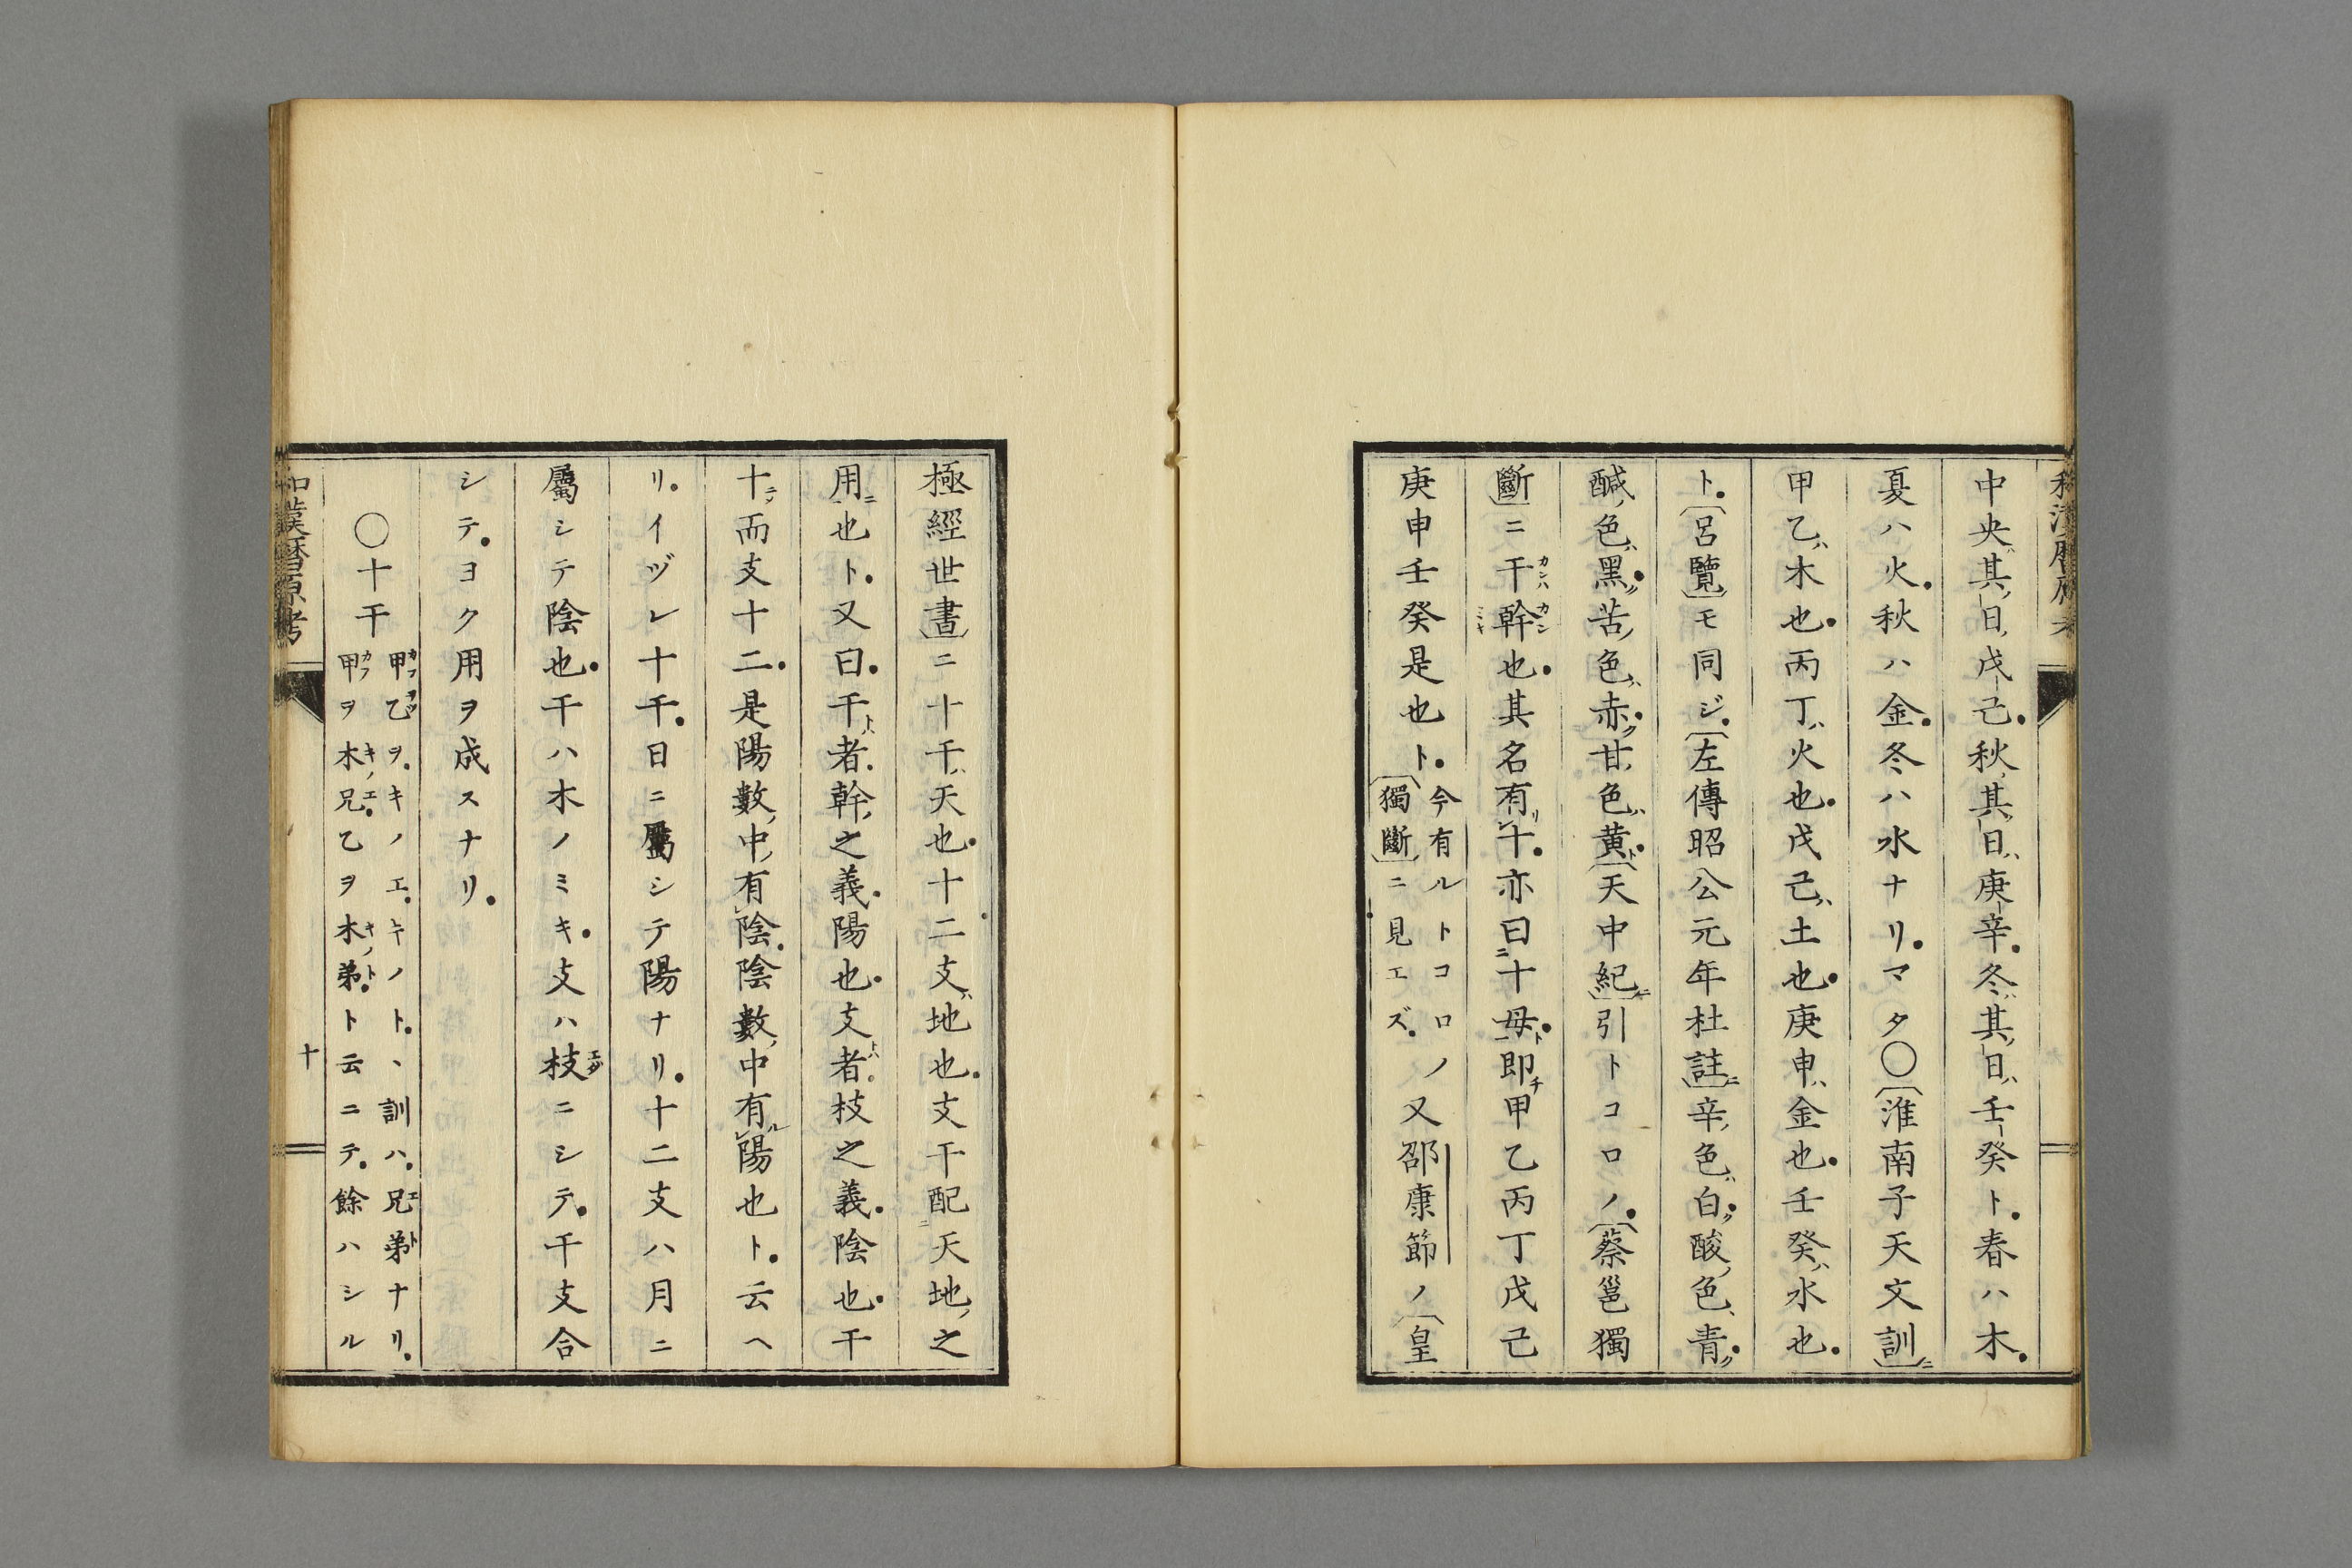 中央其日戊己秋其日庚辛冬其日壬癸ト春ハ木
夏ハ火秋ハ金冬ハ水ナリマタ〇淮南子天文訓ニ
甲乙ハ木也丙丁ハ火也戊己ハ土也庚申ハ金也壬癸ハ水也
ト呂覽モ同ジ左傳昭公元年杜註ニ辛色白酸色青
醎色黑苦色赤甘色黄ト天中紀ニ引トコロノ蔡邕獨
斷ニ干幹也其名有十亦曰十母即甲乙丙丁戊己
庚申壬癸是也ト
今有ルトコロノ
獨斷ニ見エズ
又邵康節ノ皇
極經世書ニ十干天也十二支地也支干配天地之
用也ト又曰干者幹之義陽也支者枝之義陰也干
十而支十二是陽數中有陰陰數中有陽也ト云ヘ
リイヅレ十干日ニ屬シテ陽ナリ十二支ハ月ニ
屬シテ陰也干ハ木ノミキ支ハ枝ニシテ干支合
シテヨク用ヲ成スナリ
〇十干
甲乙ヲキノエキノトヽ訓ハ兄弟ナリ
甲ヲ木兄乙ヲ木弟ト云ニテ餘ハシル
和漢暦原考
十